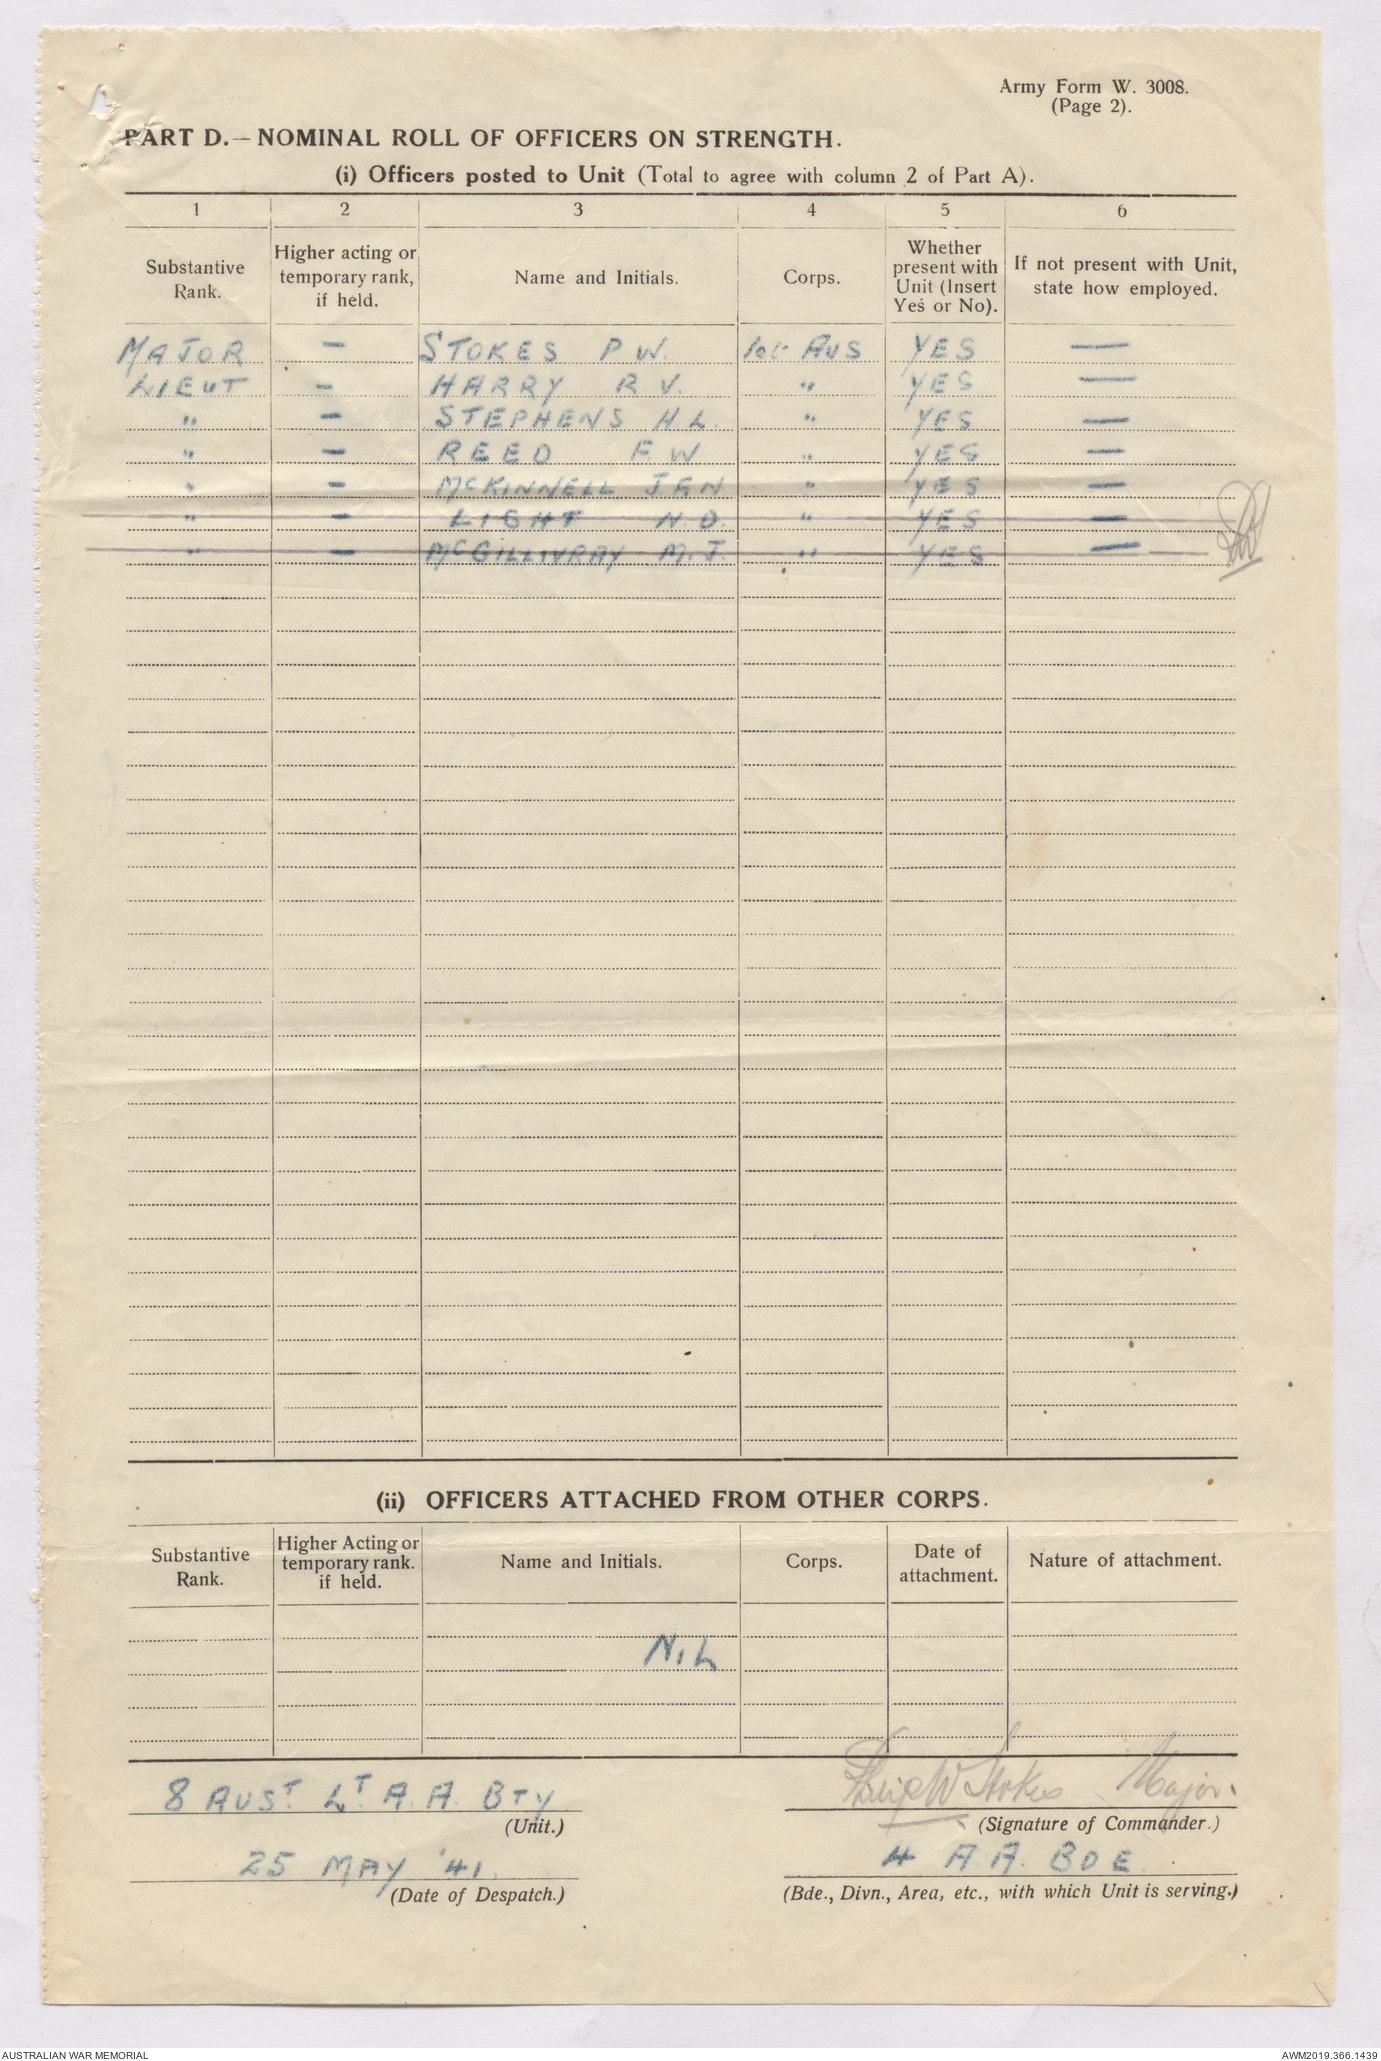 Army Form W. 3008.
(Page 2).
PART D.— NOMINAL ROLL OF OFFICERS ON STRENGTH.
(i) Officers posted to Unit (Total to agree with column 2 of Part A).
1 2 3 4 5 6
Substantive Rank. Higher acting or temporary rank, if held. Name and Initials. Corps. Whether present with Unit (Insert Yes or No). If not present with Unit, state how employed.
MAJOR — STOKES P W. AUS YES —
LIEUT — HARRY R V. " YES —
" — STEPHENS H.L. " YES —
" — REED F W " YES —
" — McKINNELL J G N " YES —
" — LIGHT N D. " YES —
" — McGILLIVRAY M.J. " YES —
(ii) OFFICERS ATTACHED FROM OTHER CORPS.
Substantive Rank. Higher Acting or temporary rank. if held. Name and Initials. Corps. Date of attachment. Nature of attachment.
NIL
8 AUST LT A.A. BTY
(Unit.)
Philip W Stokes Major.
(Signature of Commander.)
25 MAY '41.
(Date of Despatch.)
4 A.A. BDE
(Bde., Divn., Area, etc., with which Unit is serving.)
AUSTRALIAN WAR MEMORIAL
AWM2019.366.1439